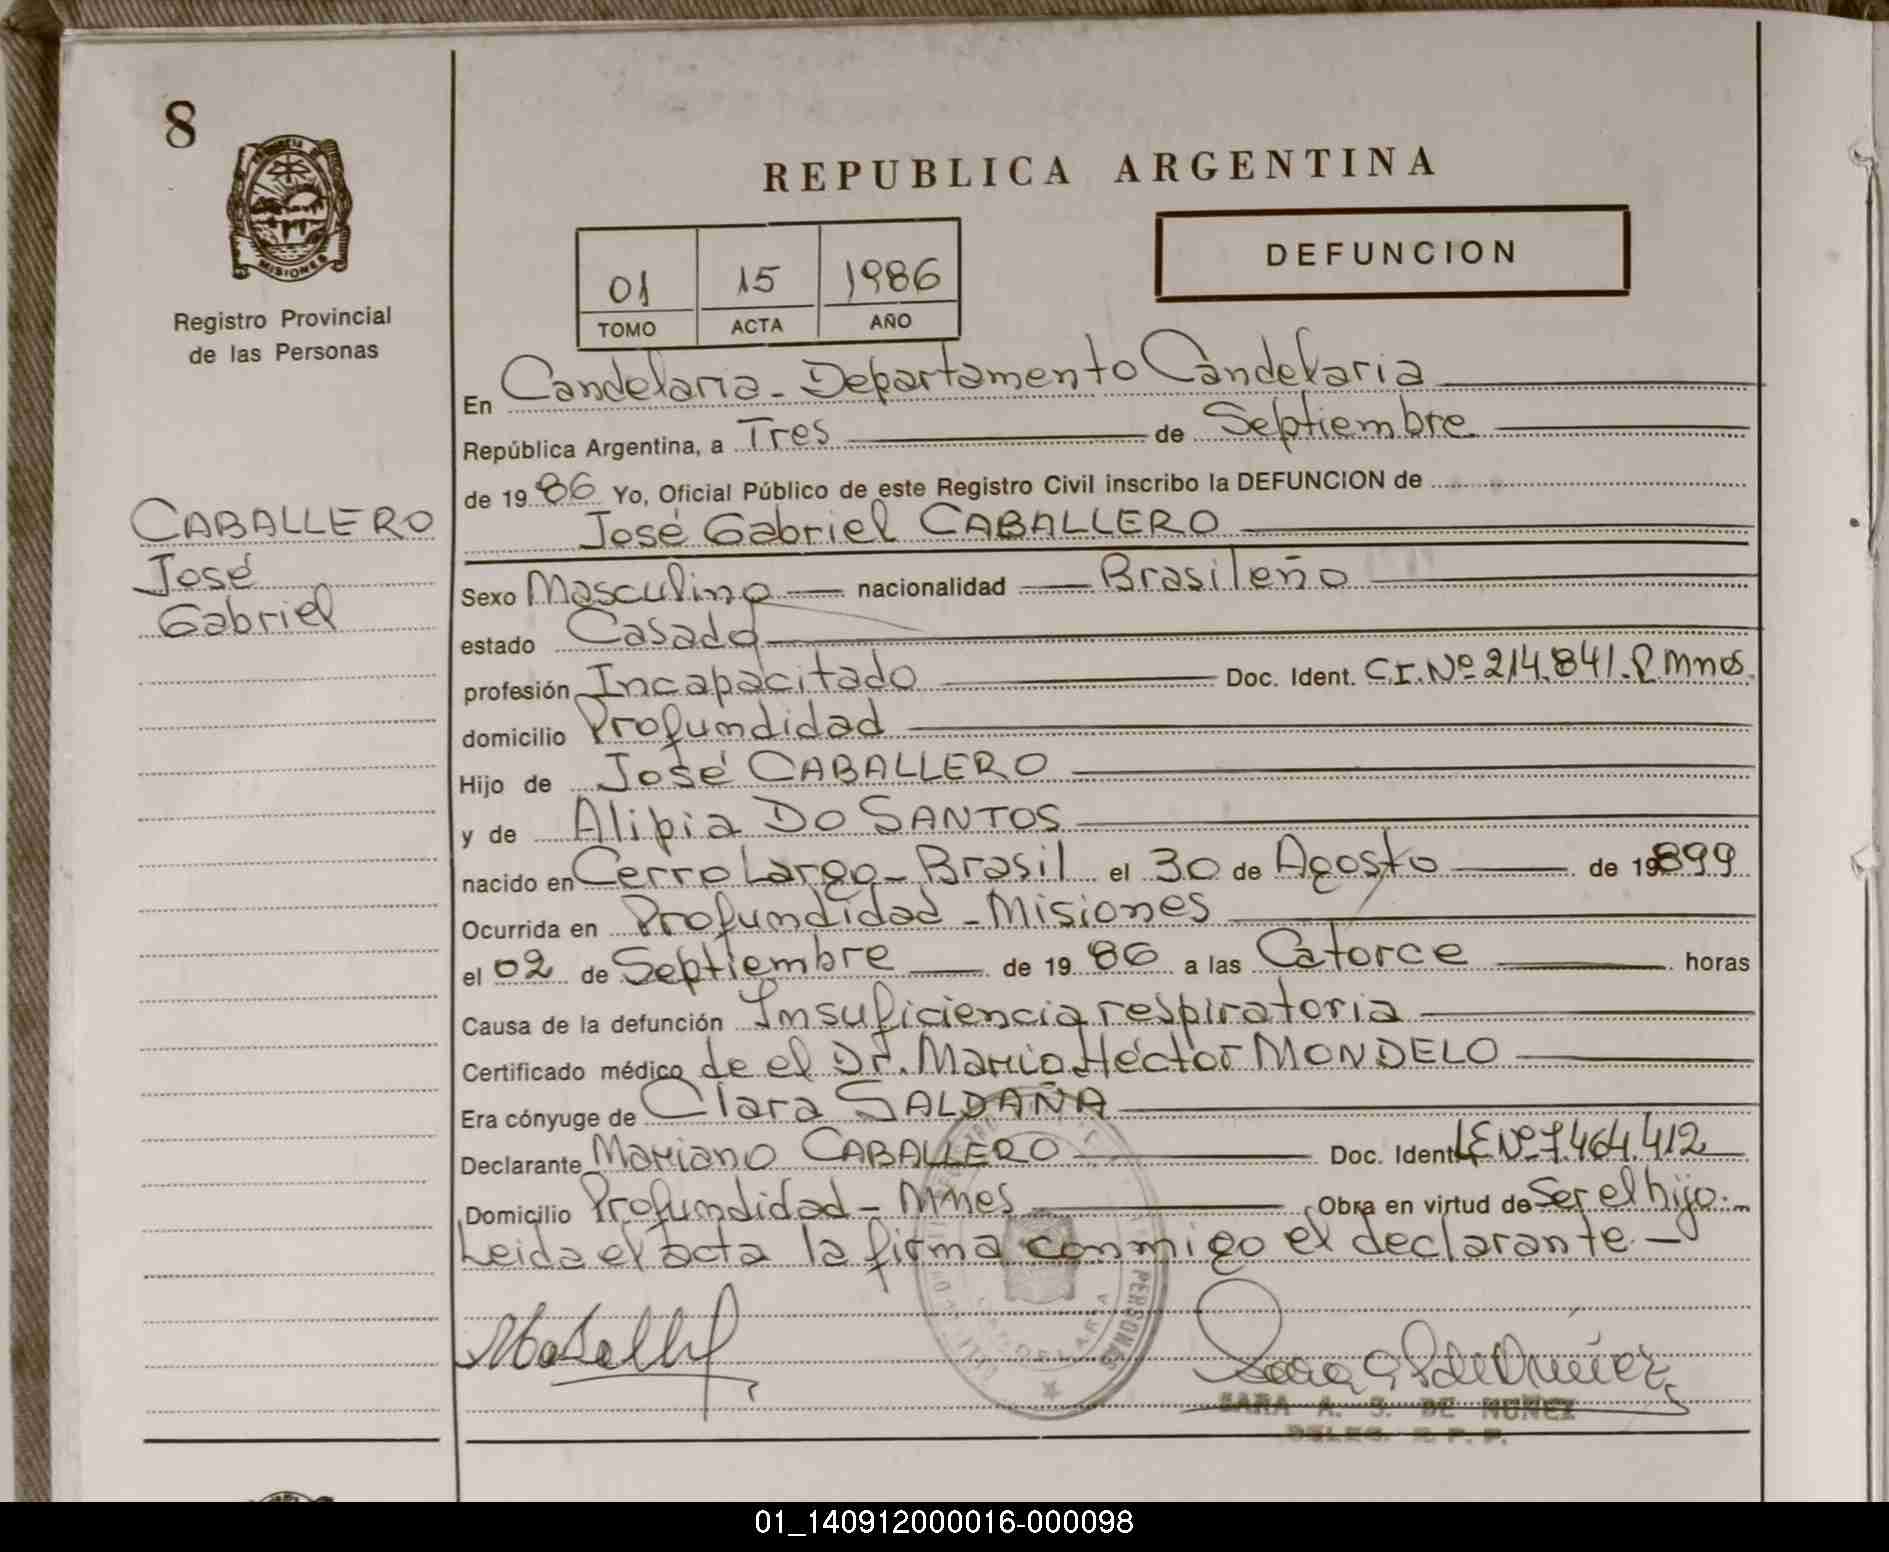 8
PROVINCIA DE
MISIONES
Registro Provincial
de las Personas
CABALLERO
José
Gabriel
REPUBLICA ARGENTINA
01 15 1986
TOMO ACTA AÑO
DEFUNCION
En Candelaria - Departamento Candelaria
República Argentina, a Tres de Septiembre
de 1986 Yo, Oficial Público de este Registro Civil inscribo la DEFUNCION de
José Gabriel CABALLERO
Sexo Masculino nacionalidad Brasileño
estado Casado
profesión Incapacitado Doc. Ident. C.I. Nº 214.841. P. Mnes.
domicilio Profundidad
Hijo de José CABALLERO
y de Alipia DO SANTOS
nacido en Cerro Largo - Brasil el 30 de Agosto de 1899
Ocurrida en Profundidad - Misiones
el 02 de Septiembre de 1986 a las Catorce horas
Causa de la defunción Insuficiencia respiratoria
Certificado médico de el Dr. Mario Héctor MONDELO
Era cónyuge de Clara SALDAÑA
Declarante Mariano CABALLERO Doc. Ident. L.E. Nº 7.464.412
Domicilio Profundidad - Mnes Obra en virtud de Ser el hijo. -
Leida el acta la firma conmigo el declarante -
PERSONAS
CANDELARIA
SARA A. S. DE NUÑEZ
DELEG. R. P. P.
01_140912000016-000098